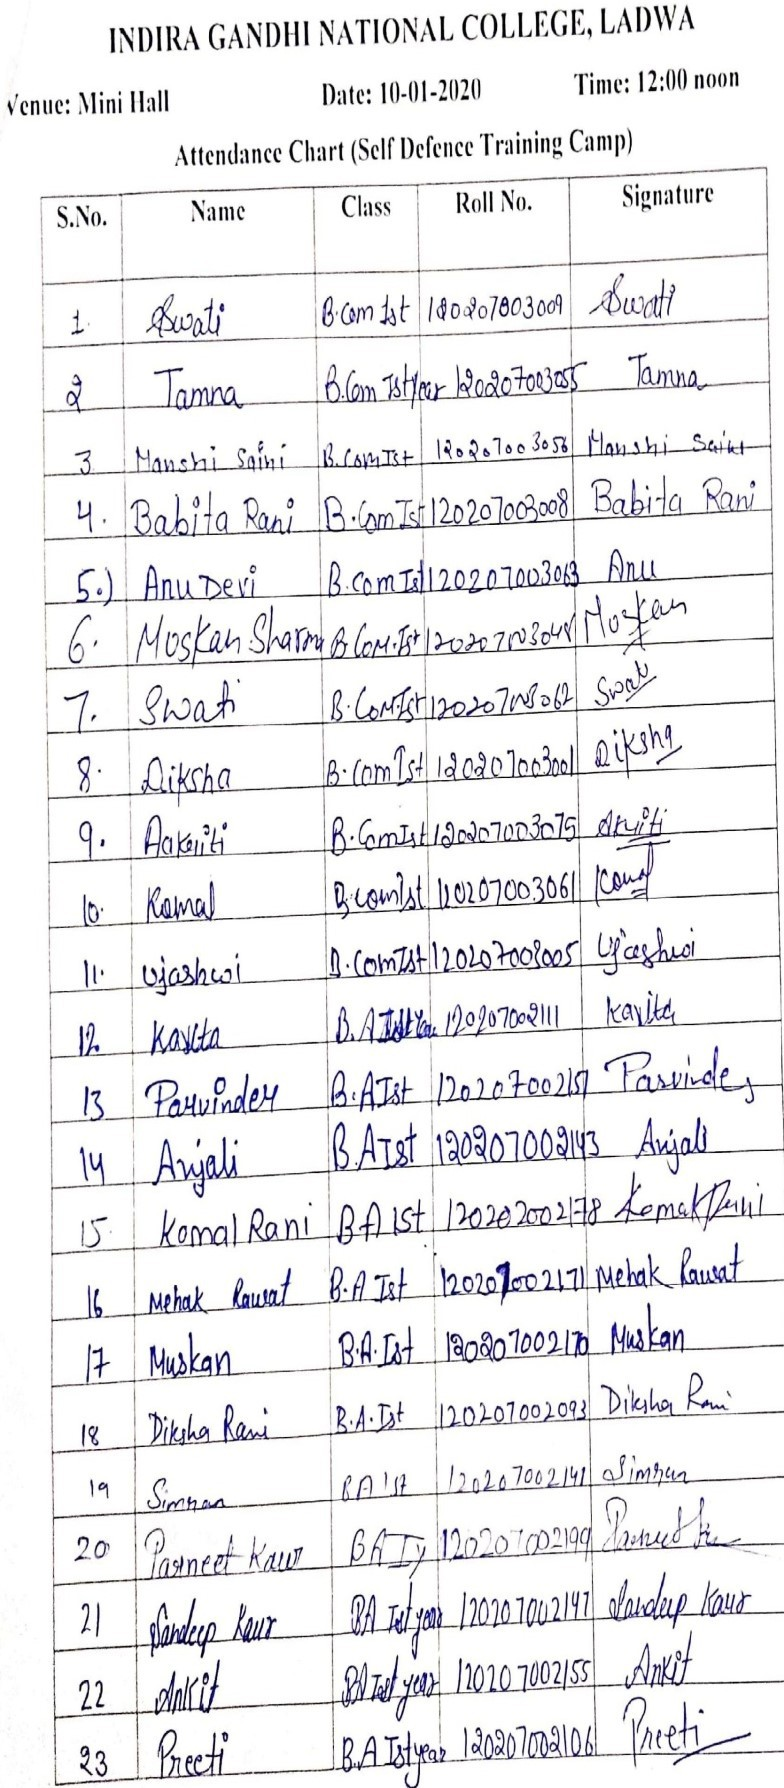 INDIRA GANDHI NATIONAL COLLEGE, LADWA
Venue: Mini Hall Date: 10-01-2020 Time: 12:00 noon
Attendance Chart (Self Defence Training Camp)
S.No. Name Class Roll No. Signature
1. Swati B.Com Ist 120207003009 Swati
2 Tamna B.Com Ist year 120207003055 Tamna
3 Manshi Saini B.Com Ist 120207003056 Manshi Saini
4. Babita Rani B.Com Ist 120207003008 Babita Rani
5.) Anu Devi B.com Ist 120207003063 Anu
6. Moskan Sharma B.Com.Ist 120207003048 Moskan
7. Swati B.Com Ist 120207003062 Swati
8. Diksha B.Com Ist 120207003001 Diksha
9. Aakriti B.Com Ist 120207003075
10. Komal B.com Ist 120207003061 Komal
11. Ujashwi B.Com Ist 120207003005 Ujashwi
12. Kavita B.A Ist Year 120207002111 Kavita
13 Parvinder B.A Ist 120207002157 Parvinder
14 Anjali B.A Ist 120207002143 Anjali
15. Komal Rani B A Ist 120202002178 Komal Rani
16 Mehak Rawat B.A Ist 120207002171 Mehak Rawat
17 Muskan B.A. Ist 120207002170 Muskan
18 Diksha Rani B.A. Ist 120207002093 Diksha Rani
19 Simran B A Ist 120207002141 Simran
20 Parneet Kaur BA Iy 120207002199 Parneet
21 Sandeep Kaur BA Ist year 120207002147 Sandeep Kaur
22 Ankit BA Ist year 120207002155 Ankit
23 Preeti B.A Ist year 120207002106 Preeti